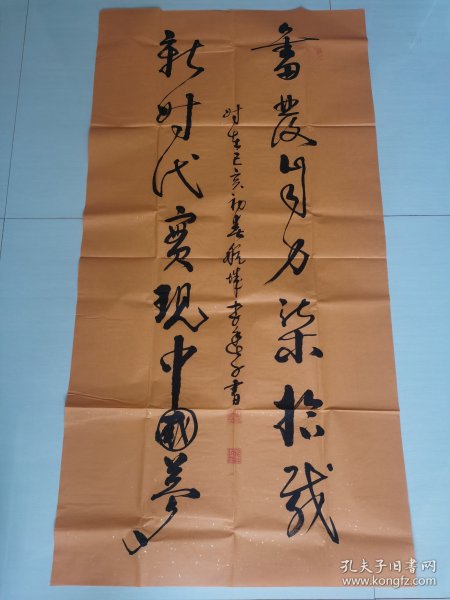 奋发有力柒拾载
新时代實现中國梦
时在己亥初春
书
孔夫子旧书网
www.kongfz.com